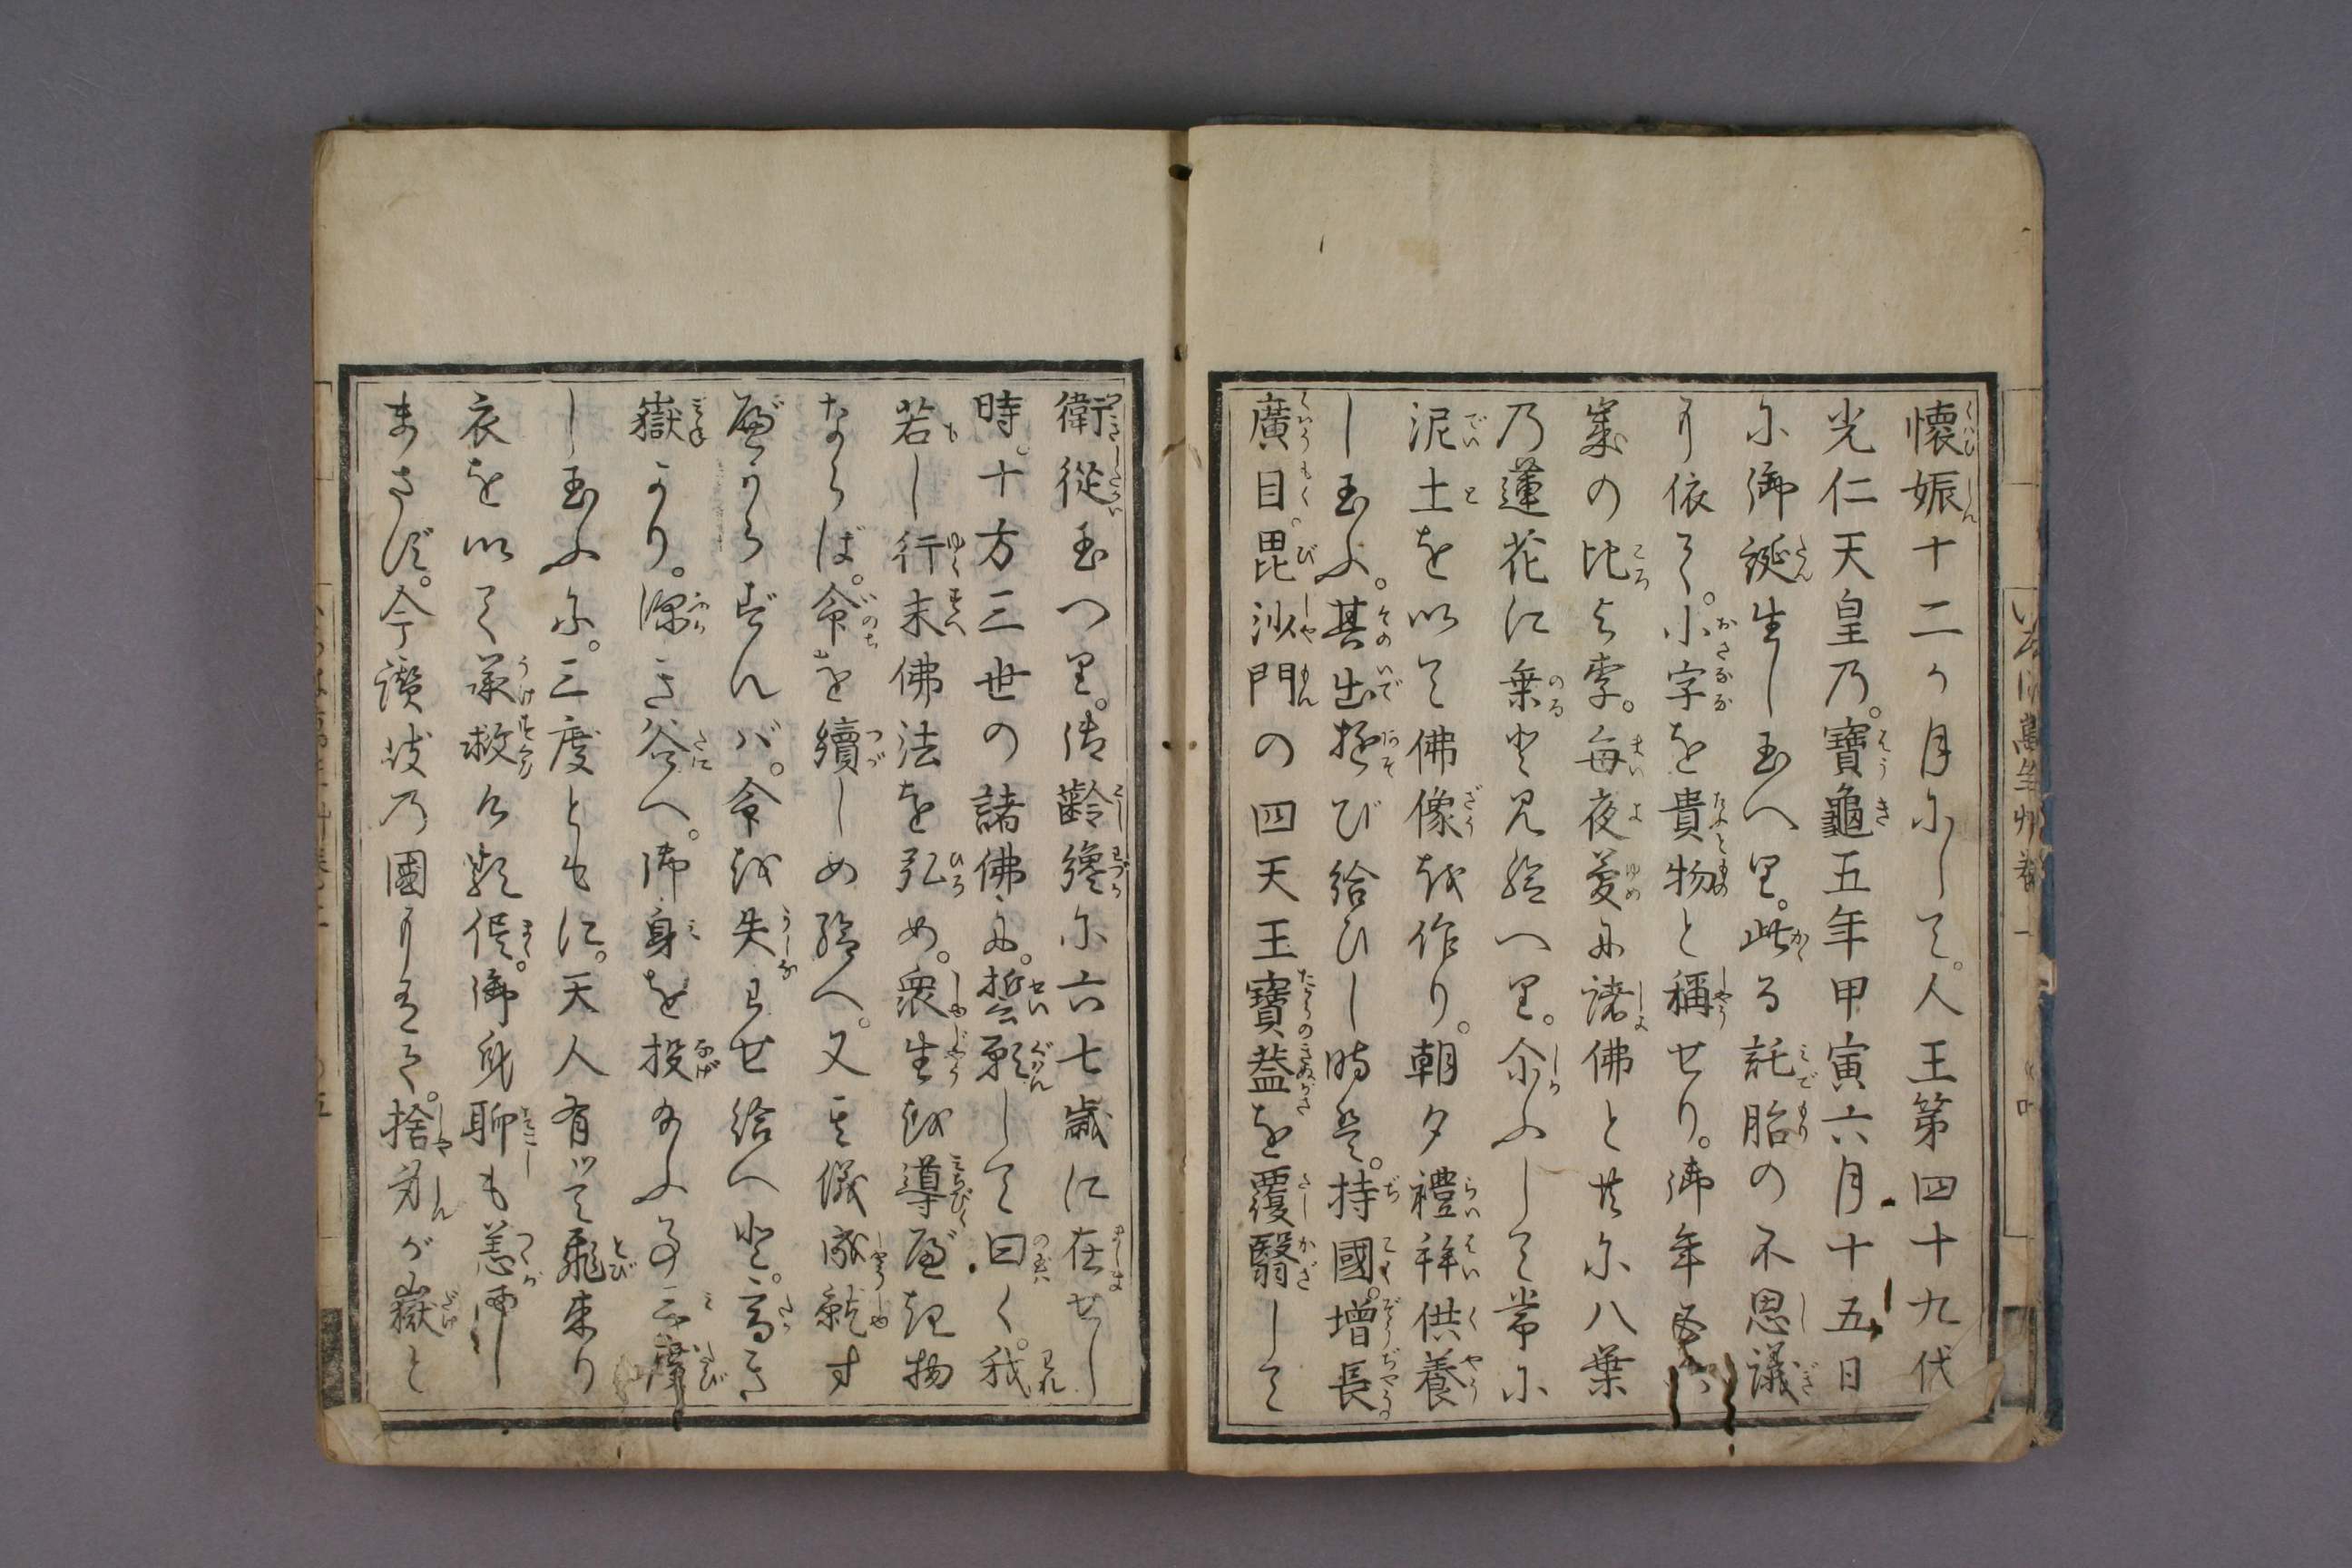 懐娠十二ヶ月にして。人王第四十九代
光仁天皇乃。寶龜五年甲寅六月十五日
に御誕生し玉へり。此る託胎の不思議
に依て。小字を貴物と稱せり。御年
歳の比より。毎夜夢に諸佛と共に八葉
乃蓮花に乗と見給へり。尓ふして常に
泥土を以て佛像を作り。朝夕禮拝供養
し玉ふ。其出遊び給ひし時は。持國。増長。
廣目。毘沙門の四天王寶葢を覆翳して
衛從玉つり。御齢纔に六七歳に在せし
時。十方三世の諸佛に。誓願して曰く。我
若し行末佛法を弘め。衆生を導べき物
ならば。命を續しめ給へ。又其儀成就す
べからずんバ。命を失はせ給へと。高き
嶽より。深き谷へ。御身を投玉ふ事三度
し玉ふに。三度ともに。天人有て飛来り
衣を以て承救公類侭。御身聊も恙㒵し
まさず。今讃岐乃國に有て。捨身が嶽と